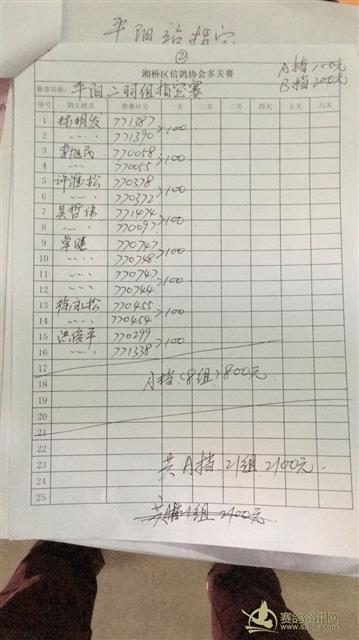 平阳站指定
②
湘桥区信鸽协会多关赛
A指100元
B指200元
赛事名称: 平阳二羽组指定赛
序号 鸽主姓名 参赛环号 一关 二关 三关 四关 五关 六关
1 771387
2 771390 >100
3 770058
4 770055 >100
5 770378
6 770372 >100
7 吴哲伟 771474
8 770097 >100
9 卓健 770747
10 770748 >100
11 770742
12 770744 >100
13 770455
14 770454 >100
15 洪俊平 770299
16 771338 >100
17
18 A指(8组)800元
19
20
21
22
23 共A指21组2100元.
24
25 共A指21组2100元
赛鸽资讯网
www.saige.com